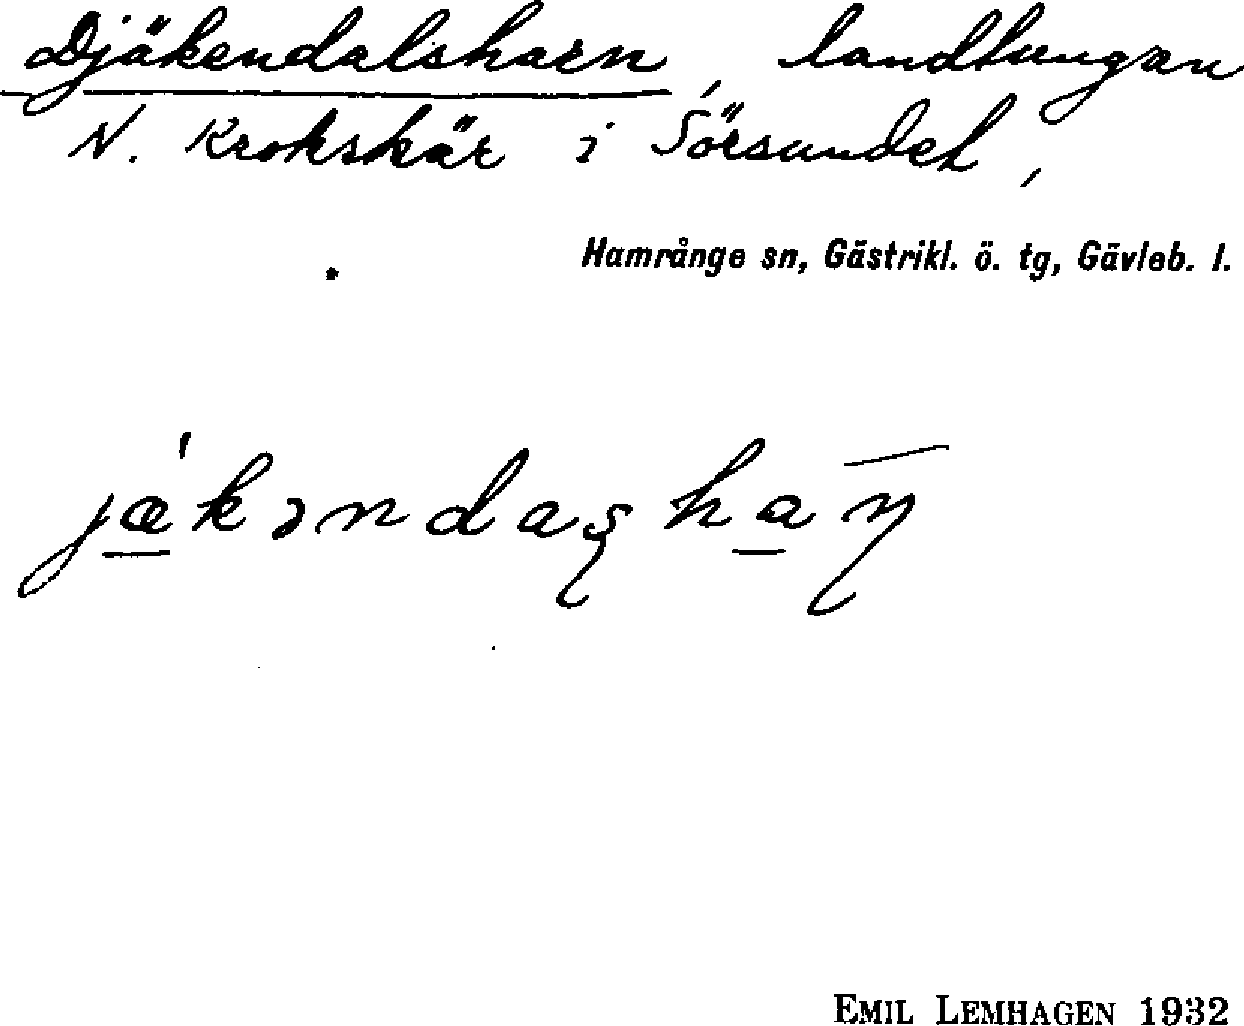 Djäkendalsharn, landtungan
N. Krokskär i Sörsundet,
Hamrånge sn, Gästrikl. ö. tg, Gävleb. l.
jækəndaʂhaɳ
EMIL LEMHAGEN 1932